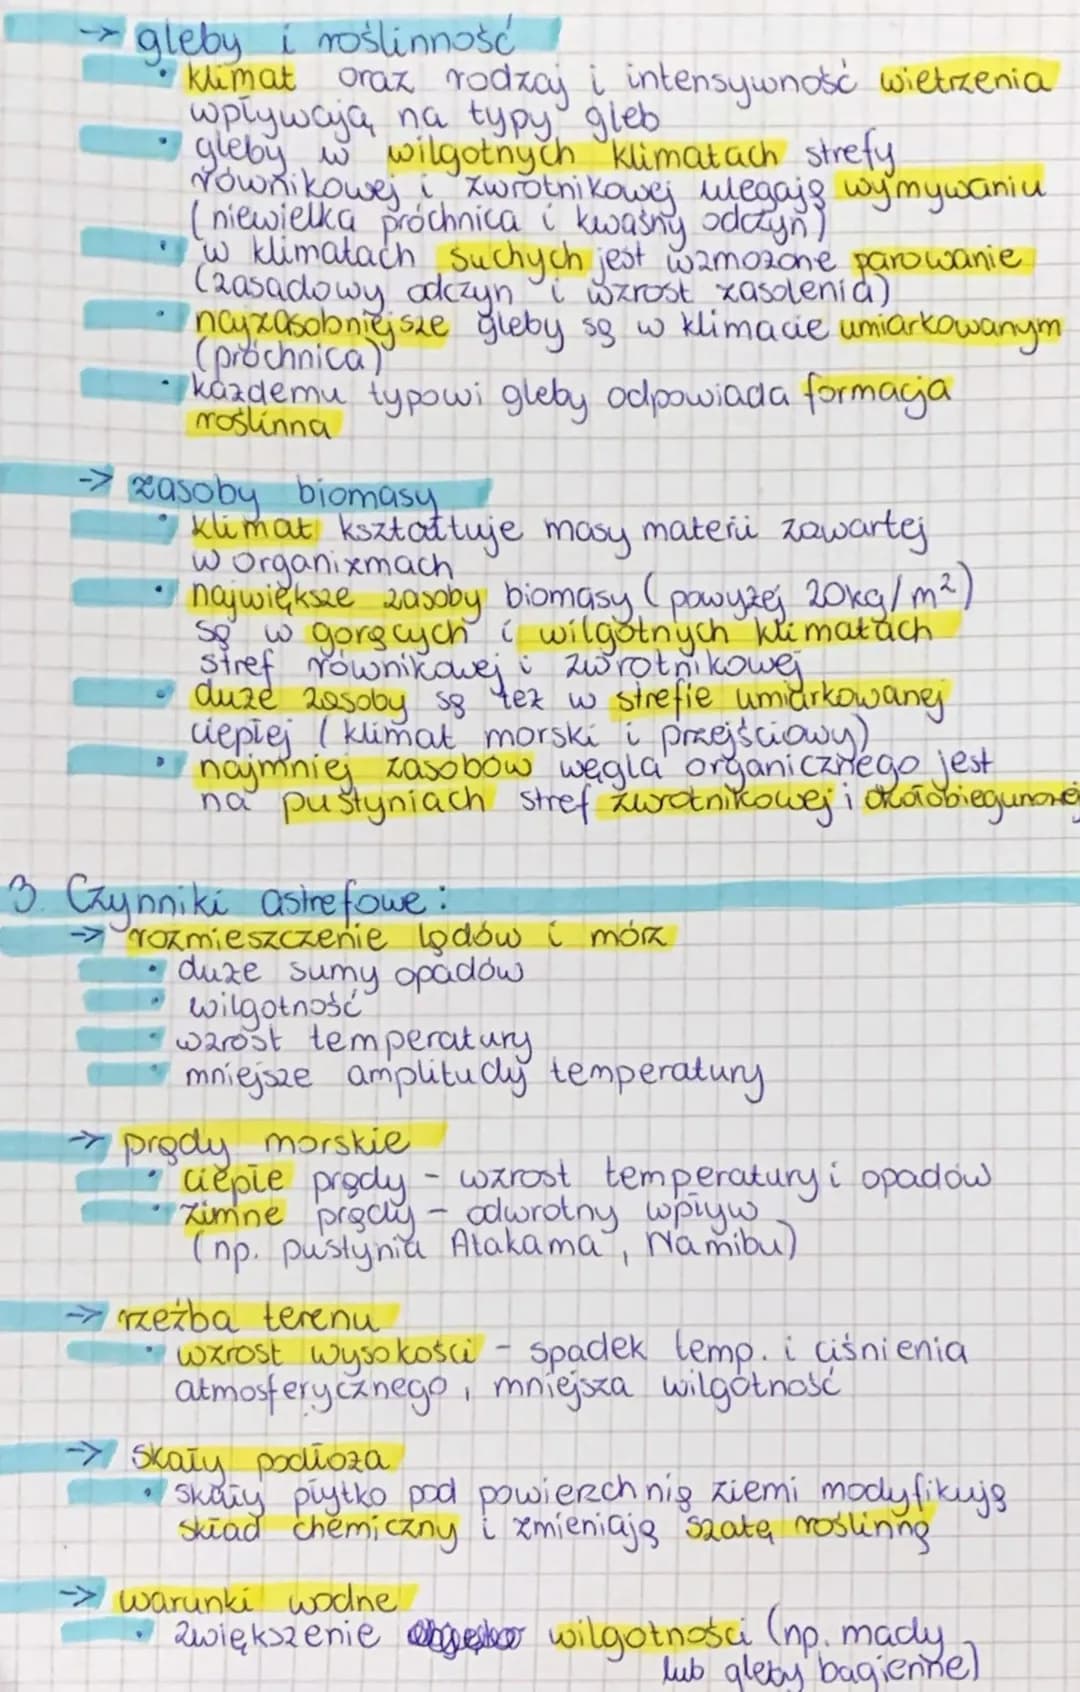 → gleby i roślinność
• klimat oraz rodzaj i intensywność wietrzenia
wpływają na typy gleb
• gleby w wilgotnych klimatach strefy
równikowej i zwrotnikowej ulegają wymywaniu
(niewielka próchnica i kwaśny odczyn)
• w klimatach suchych jest wzmożone parowanie
(zasadowy odczyn i wzrost zasolenia)
• najzasobniejsze gleby są w klimacie umiarkowanym
(próchnica)
• każdemu typowi gleby odpowiada formacja
roślinna
→ zasoby biomasy
• klimat kształtuje masy materii zawartej
w organizmach
• największe zasoby biomasy (powyżej 20kg/m²)
są w gorących i wilgotnych klimatach
stref równikowej i zwrotnikowej
• duże zasoby są też w strefie umiarkowanej
ciepłej (klimat morski i przejściowy)
• najmniej zasobów węgla organicznego jest
na pustyniach stref zwrotnikowej i okołobiegunowej
3. Czynniki astrefowe:
→ rozmieszczenie lądów i mórz
• duże sumy opadów
• wilgotność
• wzrost temperatury
• mniejsze amplitudy temperatury
→ prądy morskie
• ciepłe prądy - wzrost temperatury i opadów
• zimne prądy - odwrotny wpływ
(np. pustynia Atakama, Namibu)
→ rzeźba terenu
• wzrost wysokości - spadek temp. i ciśnienia
atmosferycznego, mniejsza wilgotność
→ skały podłoża
• skały płytko pod powierzchnią ziemi modyfikują
skład chemiczny i zmieniają szatę roślinną
→ warunki wodne
• zwiększenie wilgotności (np. mady
lub gleby bagienne)